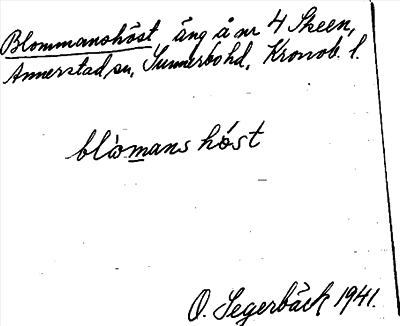 Blommanshöst äng å nr 4 Skeen,
Annerstad sn, Sunnerbo hd, Kronob. l.
blòmans hóst
O. Segerbäck 1941.